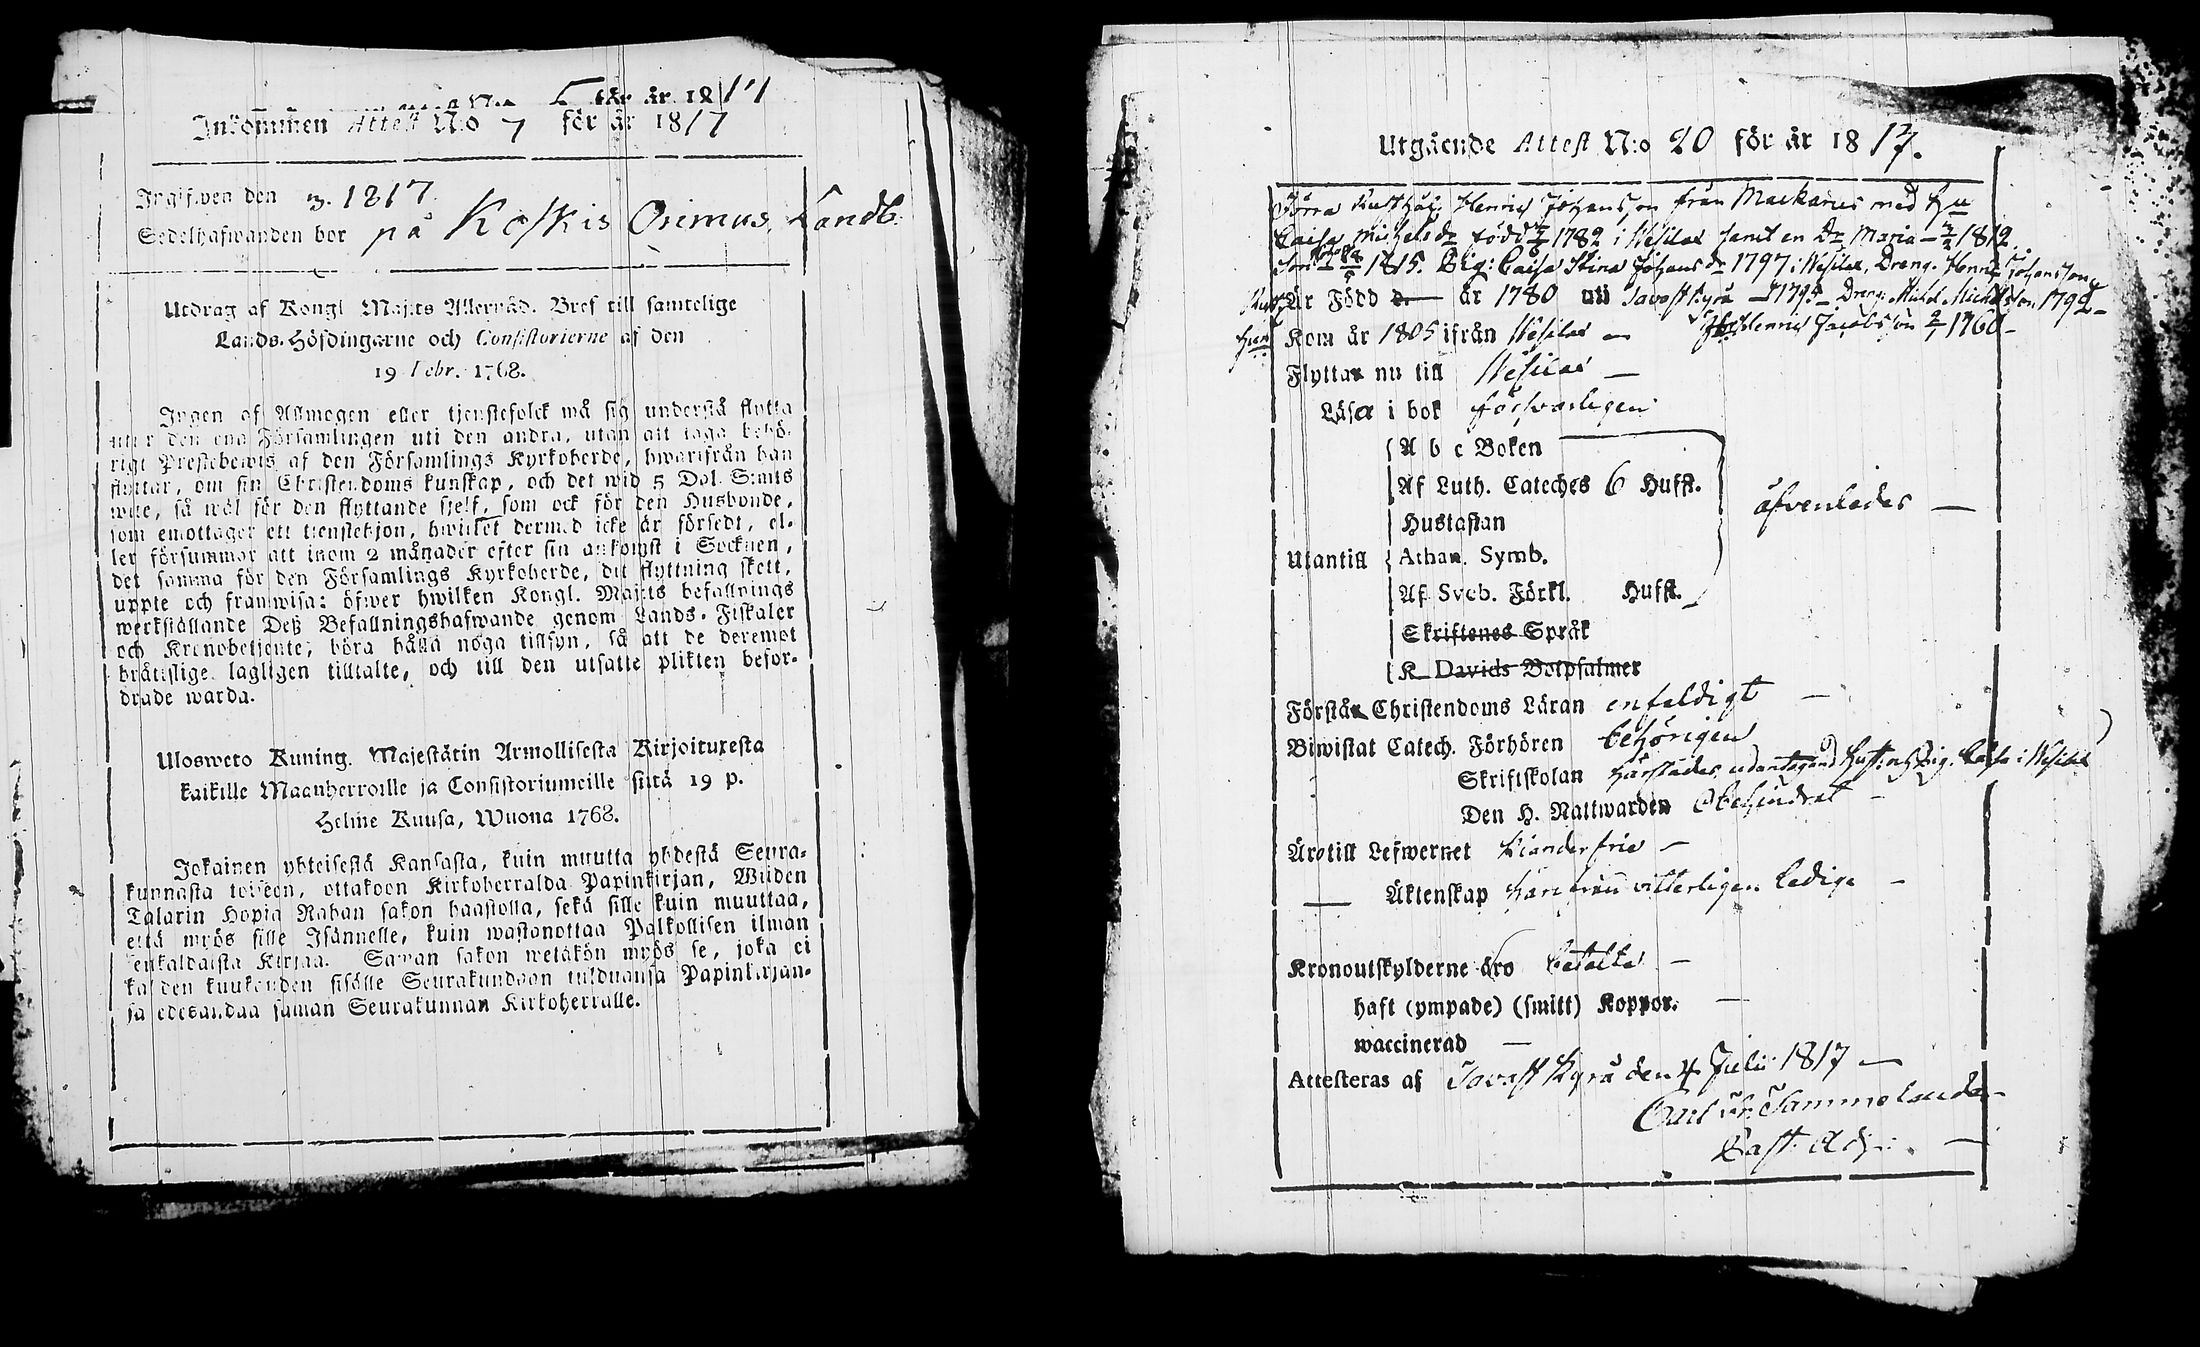 Inkommen Attest N:o 7 för år 1817
Ingifven den 1817.
Sedelhafwanden bor på Koskis Orimus Landb:
Utdrag af Kongl Maj:ts Allernåd. Bref till samtelige
Lands-Höfdingarne och Consistorierne af den
19 Febr. 1768.
Ingen af Allmogen eller tjenstefolck må sig understå flytta
utur den ena Församlingen uti den andra, utan att taga behö-
rigt Prestebewis af den Församlings Kyrkoherde, hwarifrån han
flyttar, om sin Christendoms kunskap, och det wid 5 Dal. S:mts
wite, så wäl för den flyttande sjelf, som ock för den Husbonde,
som emottager ett tjenstehjon, hwilket dermed icke är försedt, el-
ler försummar att inom 2 månader efter sin ankomst i Socknen,
det samma för den Församlings Kyrkoherde, dit flyttning skett,
uppte och framwisa: öfwer hwilken Kongl. Maj:ts befallnings
werkställande Deß Befallningshafwande genom Lands-Fiskaler
och Kronobetjente, böra hålla noga tillsyn, så att de deremot
bråttslige lagligen tilltalte, och till den utsatte plikten befor-
drade warda.
Ulosweto Kuning. Majestätin Armollisesta Kirjoituxesta
kaikille Maanherroille ja Consistoriumeille siitä 19 p.
Helme Kuusa, Wuona 1768.
Jokainen yhteisestä Kansasta, kuin muutta yhdestä Seura-
kunnasta toiseen, ottakoon Kirkoherralda Papinkirjan, Wiiden
Talarin Hopia Rahan sakon haastolla, sekä sille kuin muuttaa,
että myös sille Isännelle, kuin wastanottaa Palkollisen ilman
senkaldaista Kirjaa. Saman sakon wetäkön myös se, joka ei
kahden kuukauden sisälle Seurakundaan tulduansa Papinkirjan-
sa edesandaa saman Seurakunnan Kirkoherralle.
Utgående Attest N:o 20 för år 1817.
Förra Rusthål: Henric Johansson från Mackaris med hu
Caisa Michelsdr född 1782 i Wesilax samt en Dr Maria 1812
1815. Pig: Caisa Stina Johansdr 1797 i Wesilax, Dreng. Henric Johansson
Är Född d. — år 1780 uti Tavast Kyrö — 1795 — Dreng. Michel Michelsson 1792 —
Kom år 1805 ifrån Wesilax — Henric Jacobsson 1760 —
Flyttar nu till Wesilax —
Läsa i bok försvarligen
A b c Boken
Af Luth. Cateches 6 Hufst.
Hustaflan
äfvenledes —
Utantill Athan. Symb.
Af Sveb. Förkl. Hufst.
Skriftenes Språk
K Davids Botpsalmer
Förstår Christendoms Läran enfaldigt —
Biwistat Catech. Förhören behörigen
Skriftskolan härstädes, undantagand i Wesilax
Den H. Nattwarden Obehindrat —
Äro till Lefwernet klanderfrie —
— Äktenskap härifrån vitterligen ledige —
Kronoutskylderne äro betalte —
haft (ympade) (smitt) Koppor. —
waccinerad —
Attesteras af Tavast Kyrö den 4 Julii 1817 —
Carl Fr. Tammelander
Past: Adj: —